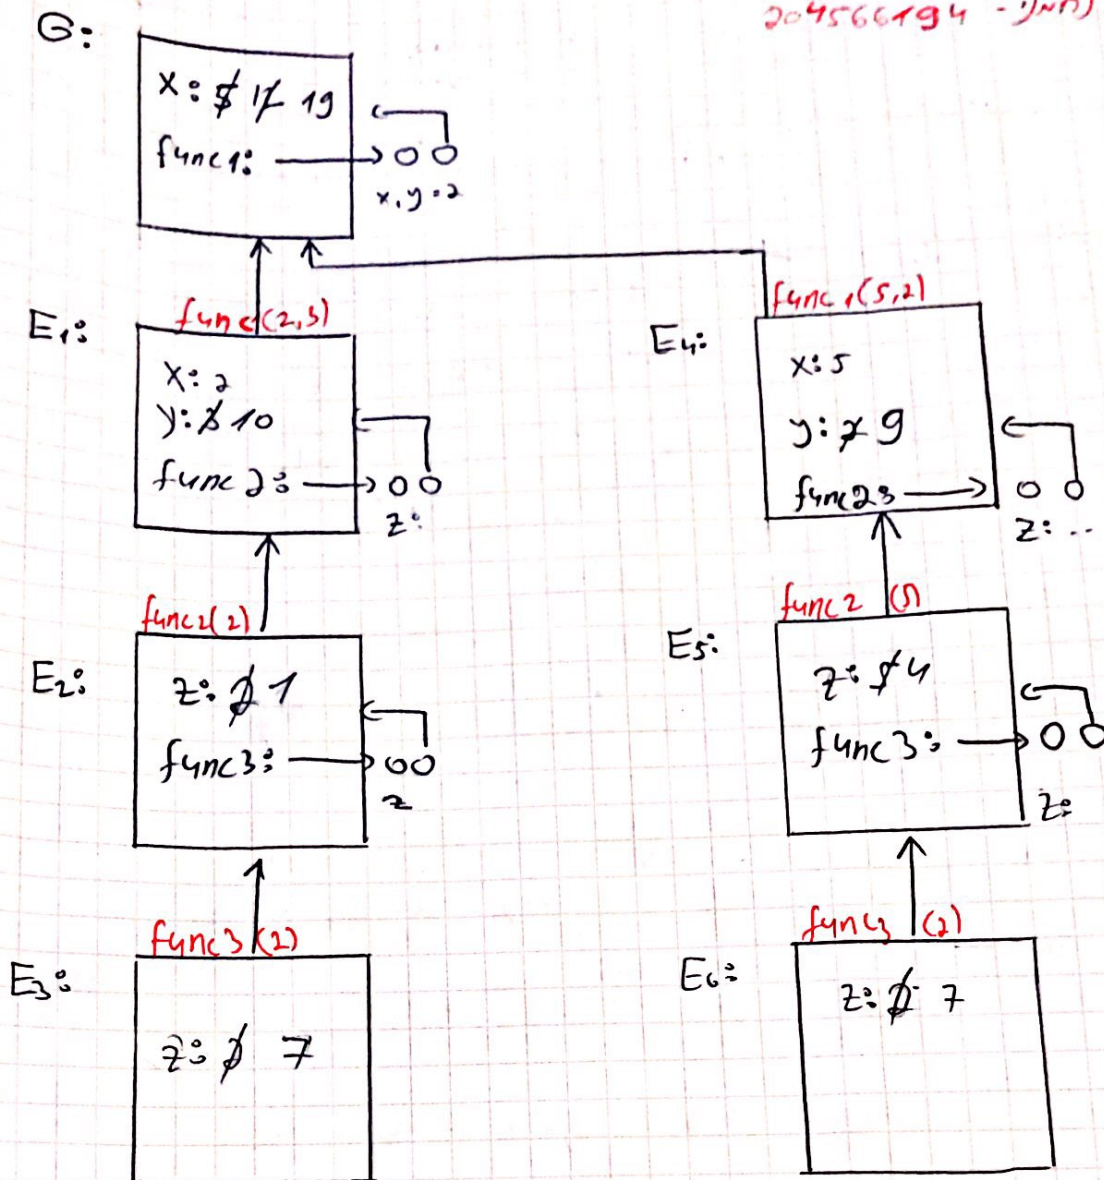 204566194 -
G:
x: 5 17 19
func1:
x, y=2
E1:
func1(2,3)
x: 2
y: 3 10
func2:
z:
E2:
func2(2)
z: 2 1
func3:
z
E3:
func3(2)
z: 2 7
E4:
func1(5,2)
x: 5
y: 2 9
func2:
z: ..
E5:
func2 (5)
z: 5 4
func3:
z:
E6:
func3 (2)
z: 2 7